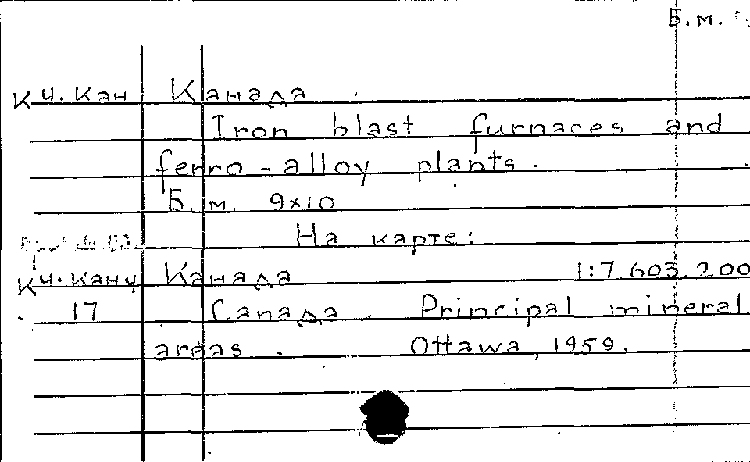 Б.м.
К ч. Кан Канада
Iron blast furnaces and
ferro-alloy plants.
Б.м. 9x10
На карте:
К ч. Кан ч Канада 1:7.603.200
17 Canaда. Principal mineral
areas. Ottawa, 1959.